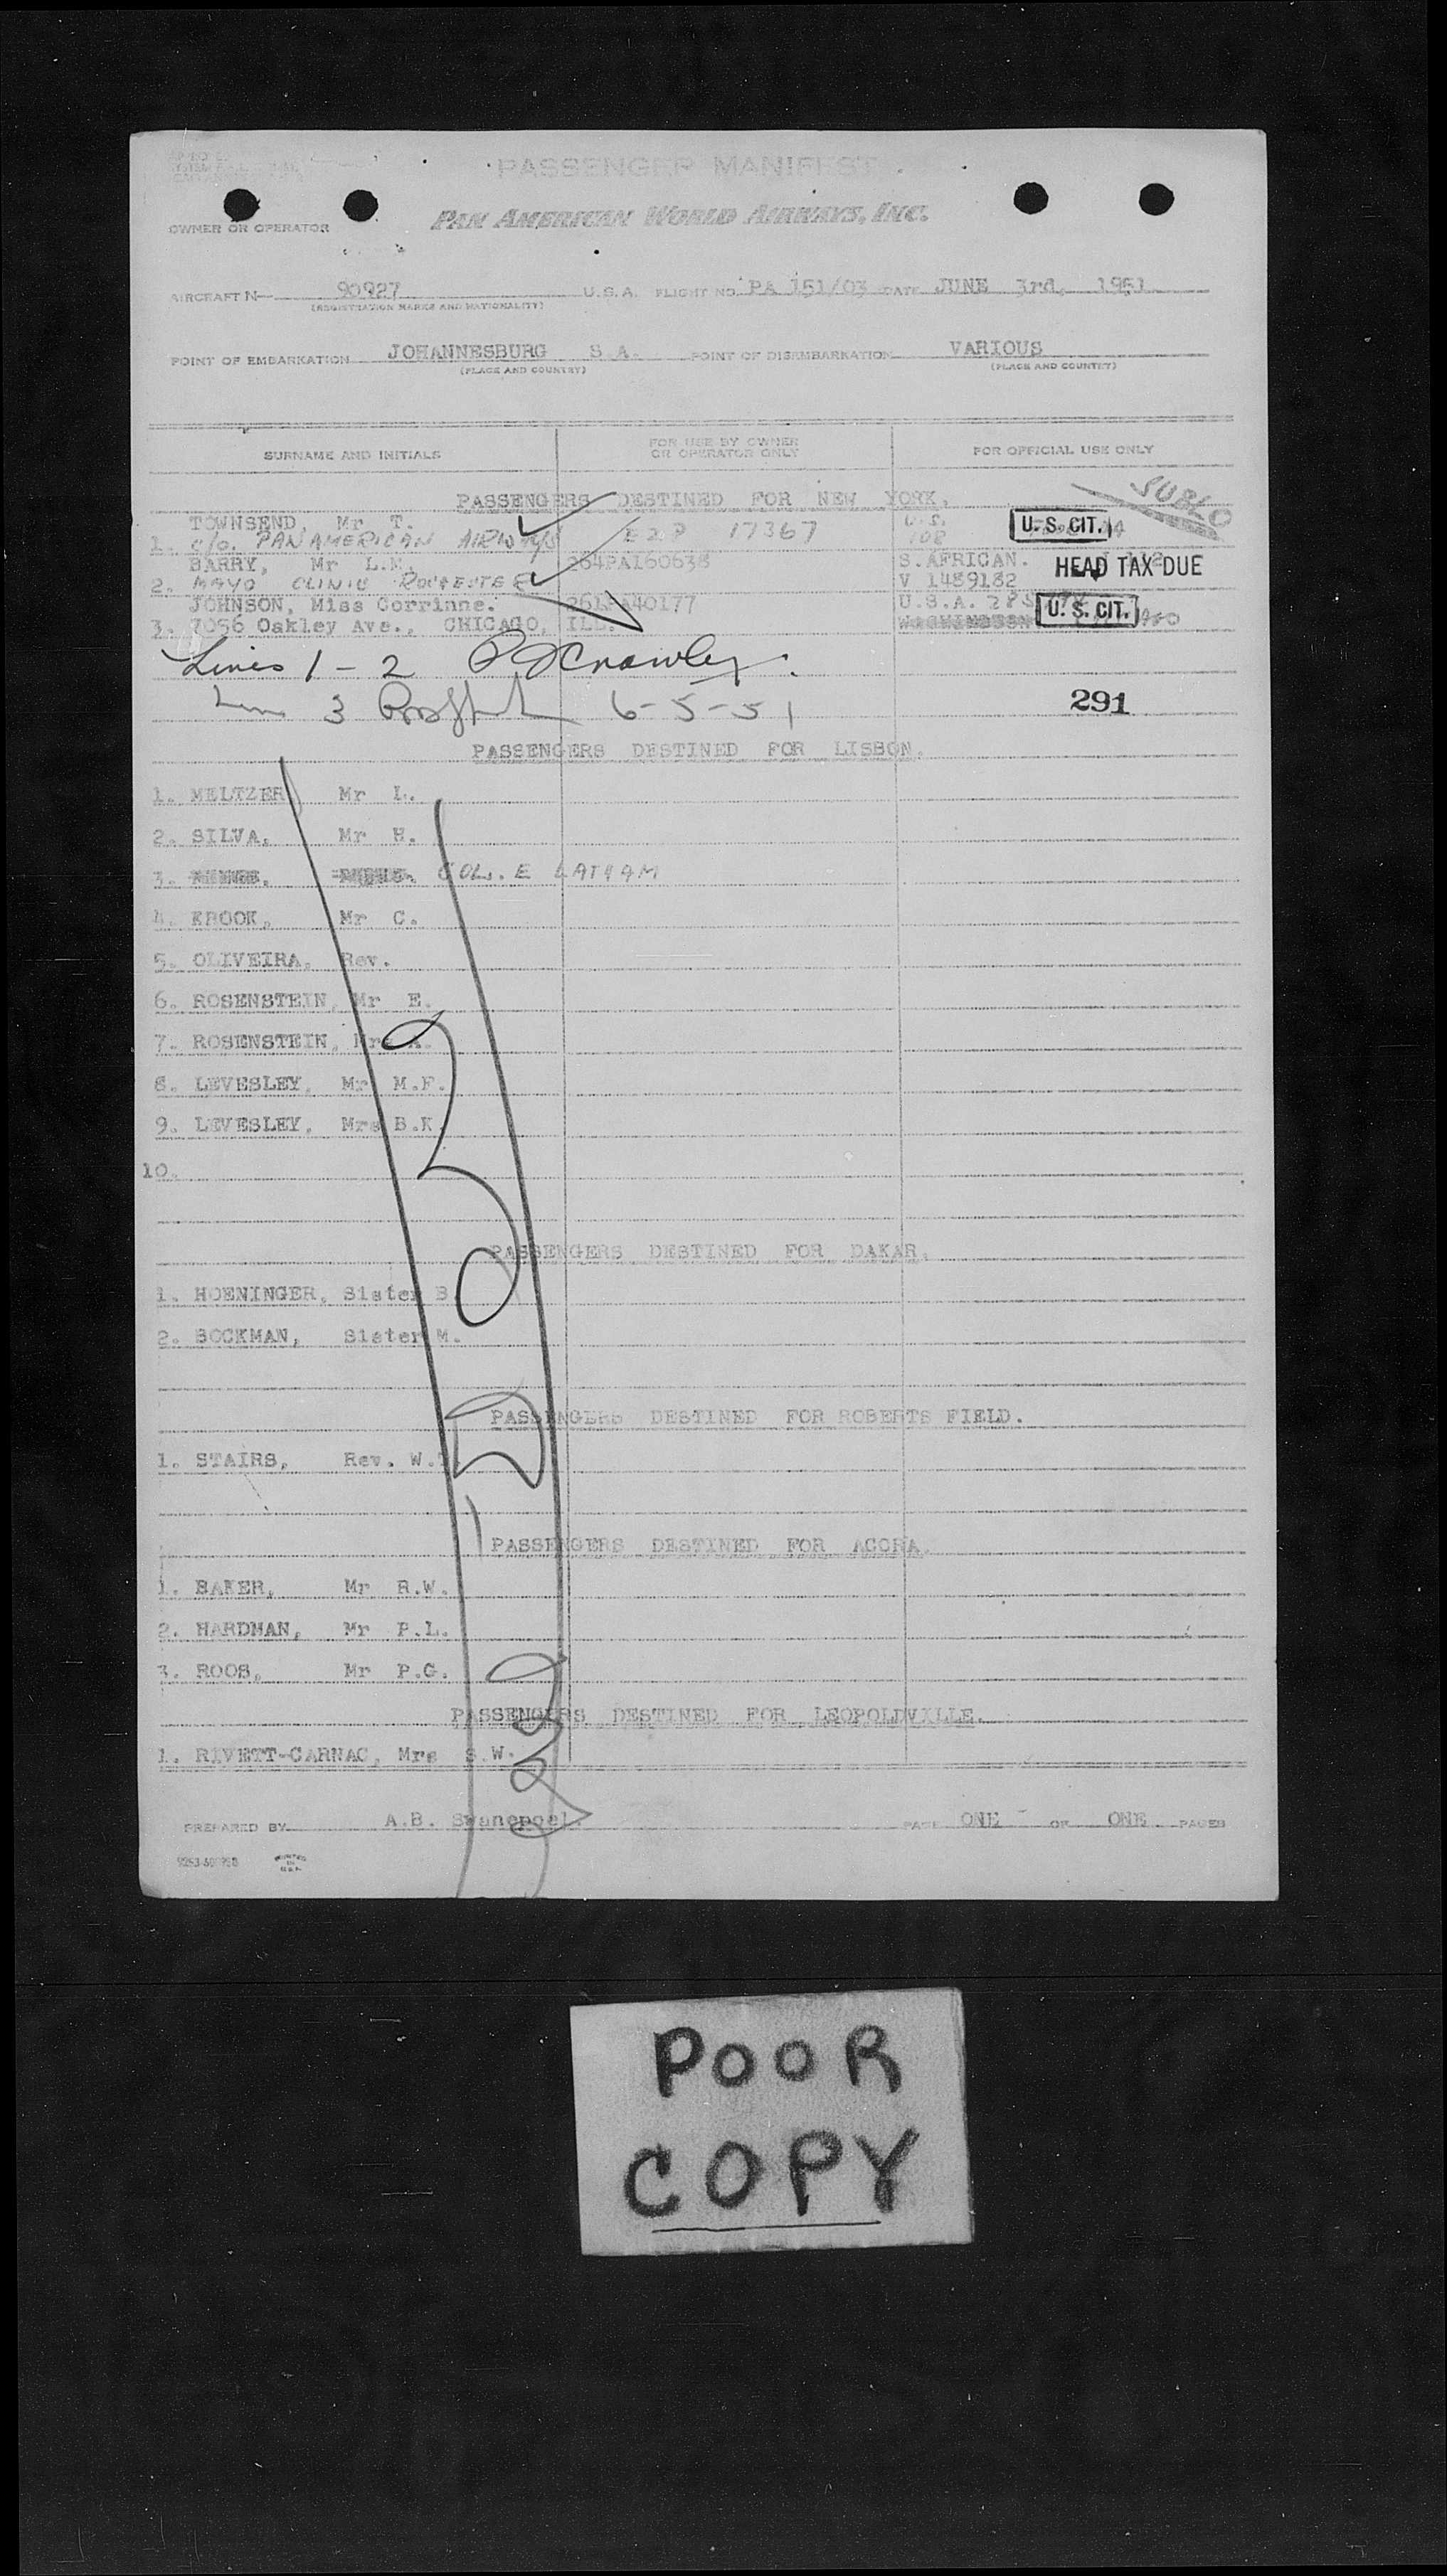 PASSENGER MANIFEST
OWNER OR OPERATOR PAN AMERICAN WORLD AIRWAYS, INC.
AIRCRAFT N— 90927 U.S.A. FLIGHT NO. PA 151/03 DATE JUNE 3rd, 1951
(REGISTRATION MARKS AND NATIONALITY)
POINT OF EMBARKATION JOHANNESBURG S A. POINT OF DISEMBARKATION VARIOUS
(PLACE AND COUNTRY) (PLACE AND COUNTRY)
SURNAME AND INITIALS FOR USE BY OWNER OR OPERATOR ONLY FOR OFFICIAL USE ONLY
PASSENGERS DESTINED FOR NEW YORK.
TOWNSEND, Mr T. U.S. U. S. CIT.
1. c/o. PAN AMERICAN AIRWAYS 17367
BARRY, Mr L.M. 264PA160638 S. AFRICAN. HEAD TAX DUE
2. MAYO CLINIC V 1489182
JOHNSON, Miss Corrinne. 261PA40177 U.S.A. U. S. CIT.
3. 7056 Oakley Ave., CHICAGO, ILL.
Lines 1 - 2 Crowley.
Line 3 6-5-51
291
PASSENGERS DESTINED FOR LISBON.
1. MELTZER, Mr L.
2. SILVA, Mr H.
3. COL. E LATHAM
4. KROOK, Mr C.
5. OLIVEIRA, Rev.
6. ROSENSTEIN, Mr E.
7. ROSENSTEIN, Mrs A.
8. LEVESLEY, Mr M.F.
9. LEVESLEY, Mrs B.K.
10.
PASSENGERS DESTINED FOR DAKAR.
1. HOENINGER, Sister B.
2. BOCKMAN, Sister M.
PASSENGERS DESTINED FOR ROBERTS FIELD.
1. STAIRS, Rev. W.
PASSENGERS DESTINED FOR ACCRA.
1. BAKER, Mr R.W.
2. HARDMAN, Mr P.L.
3. ROOS, Mr P.G.
PASSENGERS DESTINED FOR LEOPOLDVILLE.
1. RIVETT-CARNAC, Mrs S.W.
PREPARED BY A.B. Swanepoel. PAGE ONE OF ONE PAGES
PRINTED IN U.S.A.
POOR
COPY